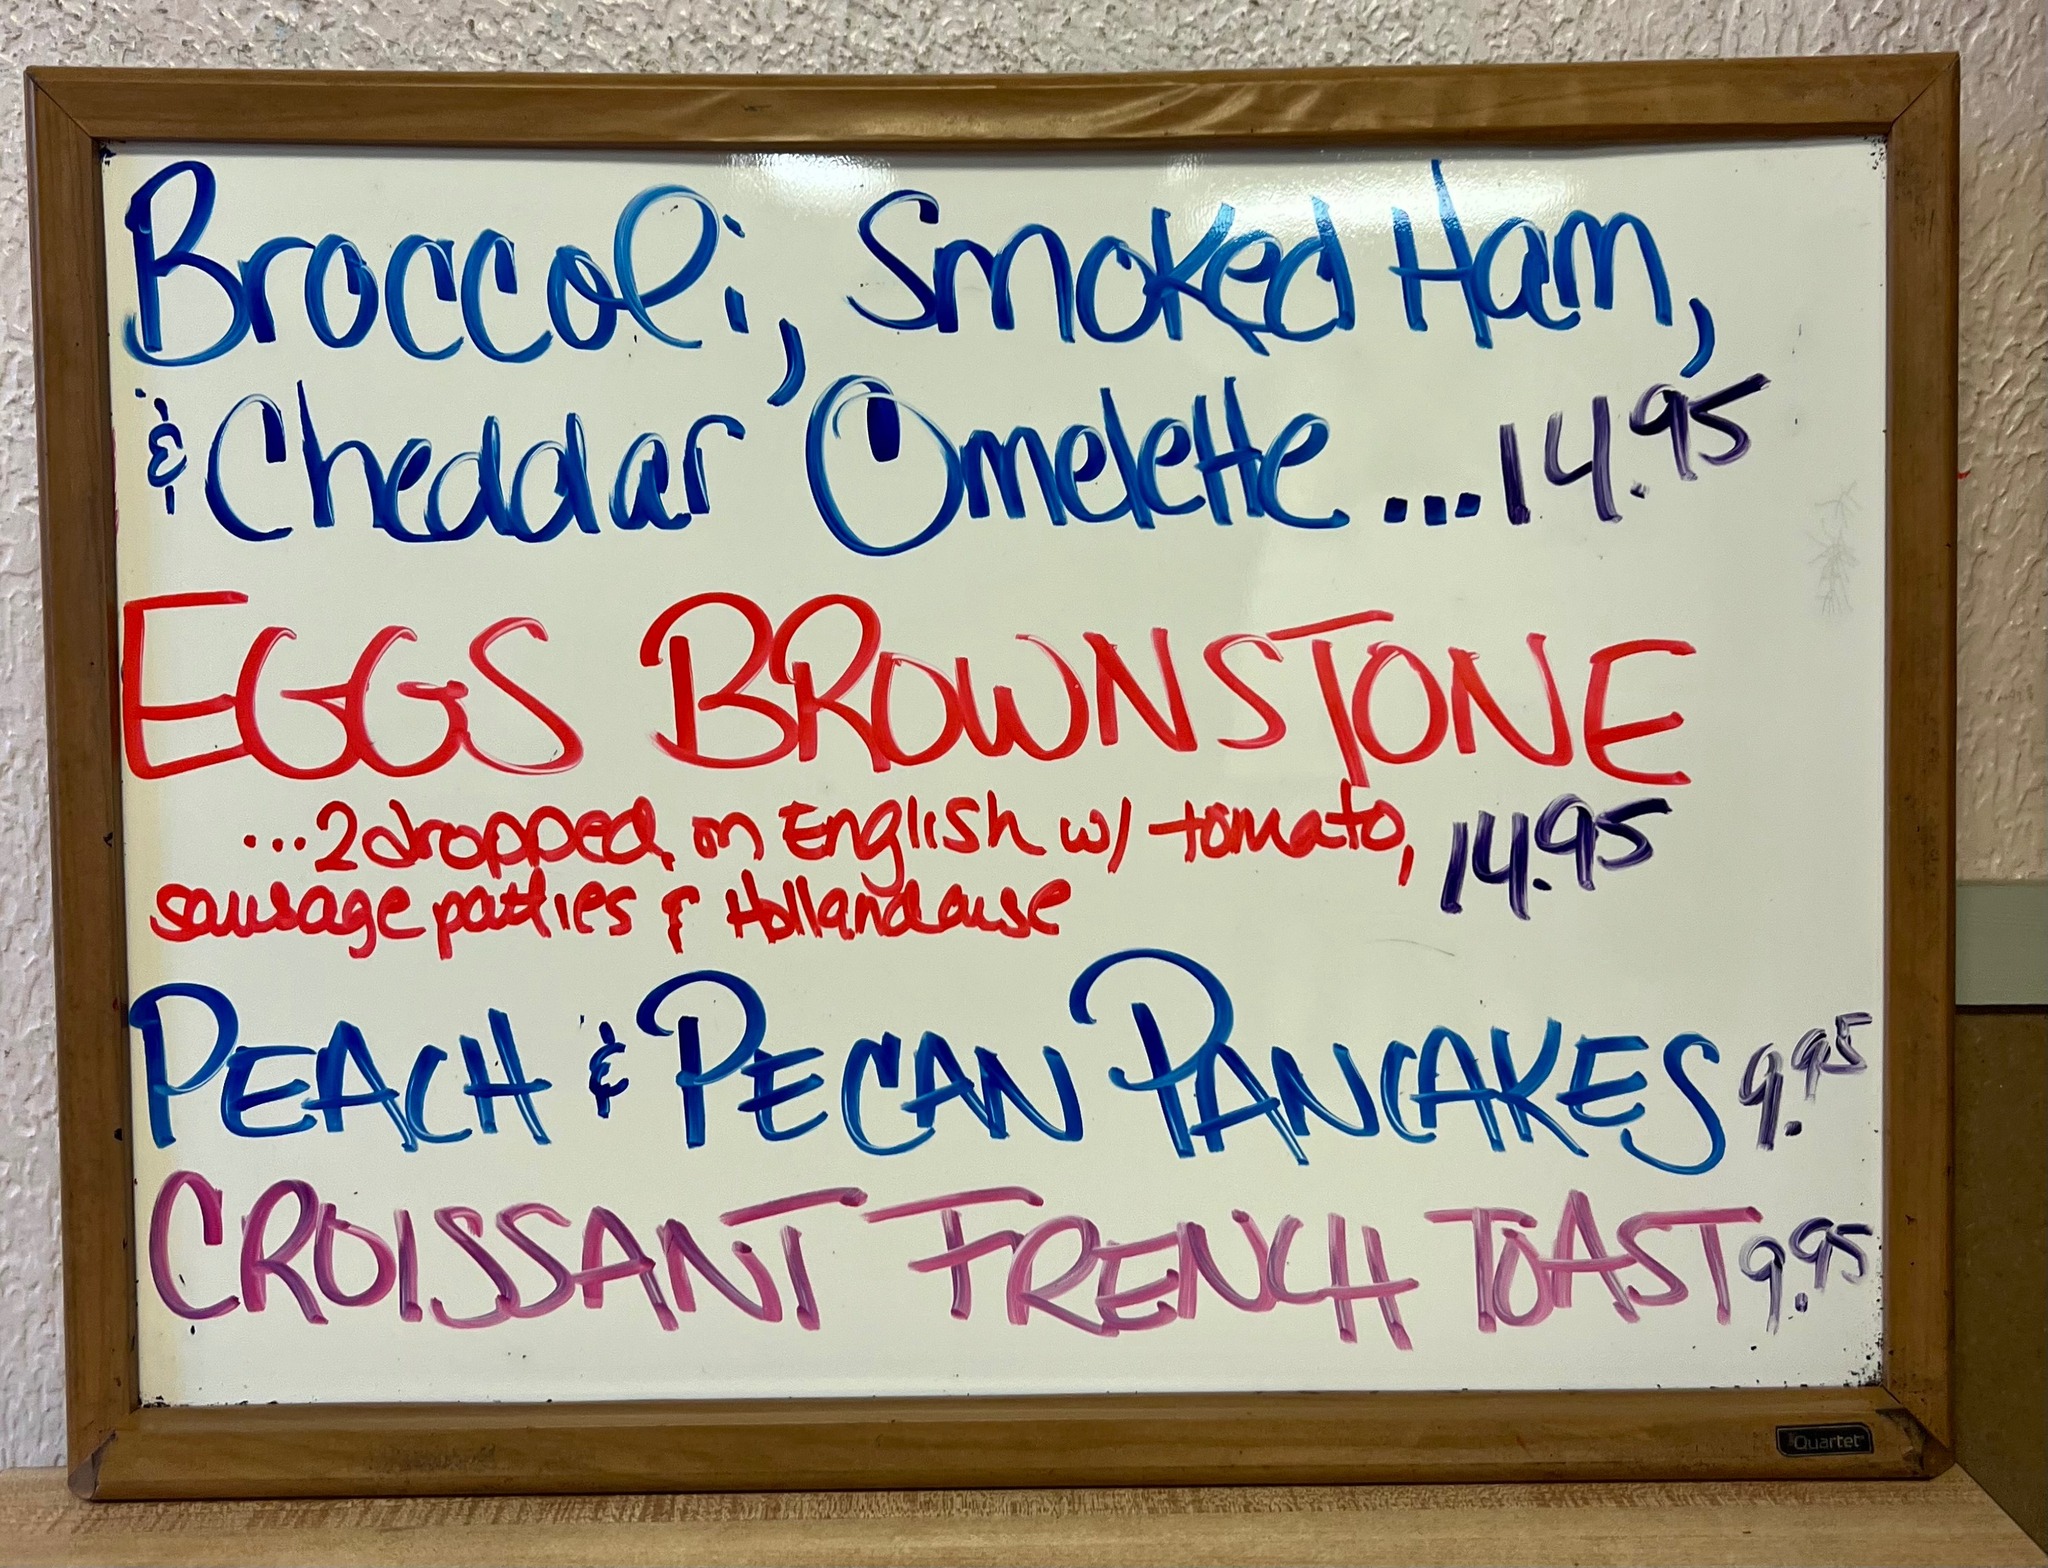 Broccoli, Smoked Ham,
& Cheddar Omelette ... 14.95
EGGS BROWNSTONE
...2 dropped on English w/ tomato, 14.95
sausage patties & Hollandause
PEACH & PECAN PANCAKES 9.95
CROISSANT FRENCH TOAST 9.95
Quartet